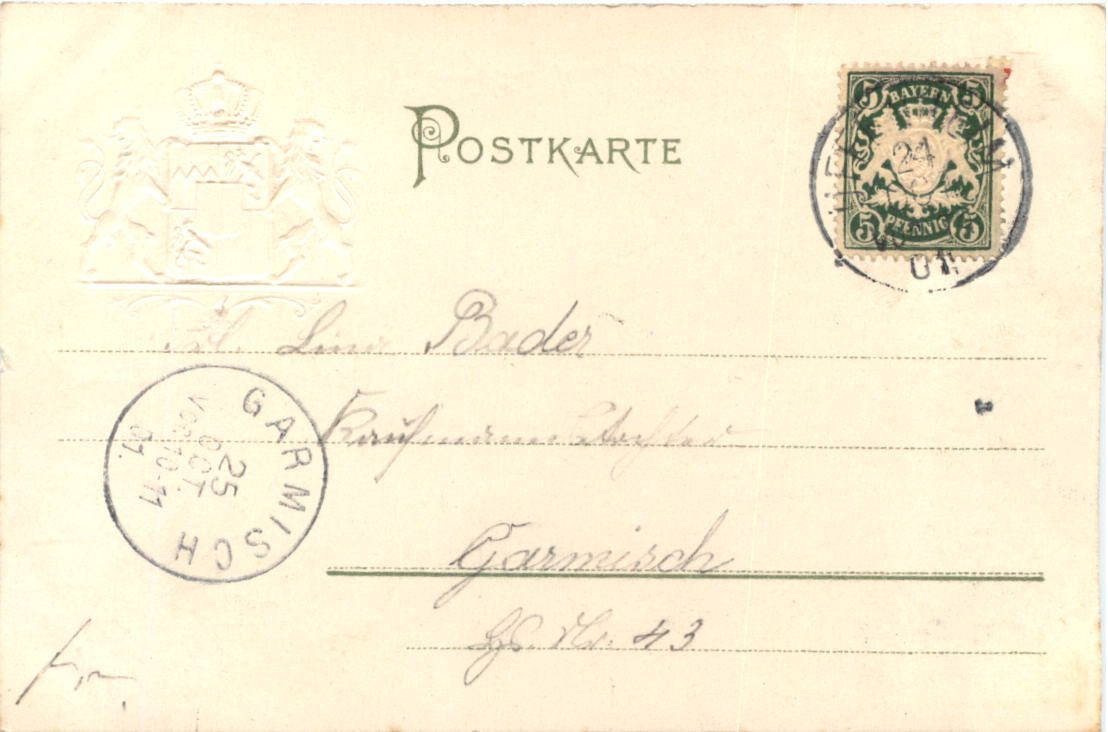 POSTKARTE
5 BAYERN 5
5 PFENNIG 5
24
01.
Frl. Lina Bader
Kaufmannstochter
GARMISCH
25
OCT.
VOR. 10-11
01.
Garmisch
Hs. Nr. 43